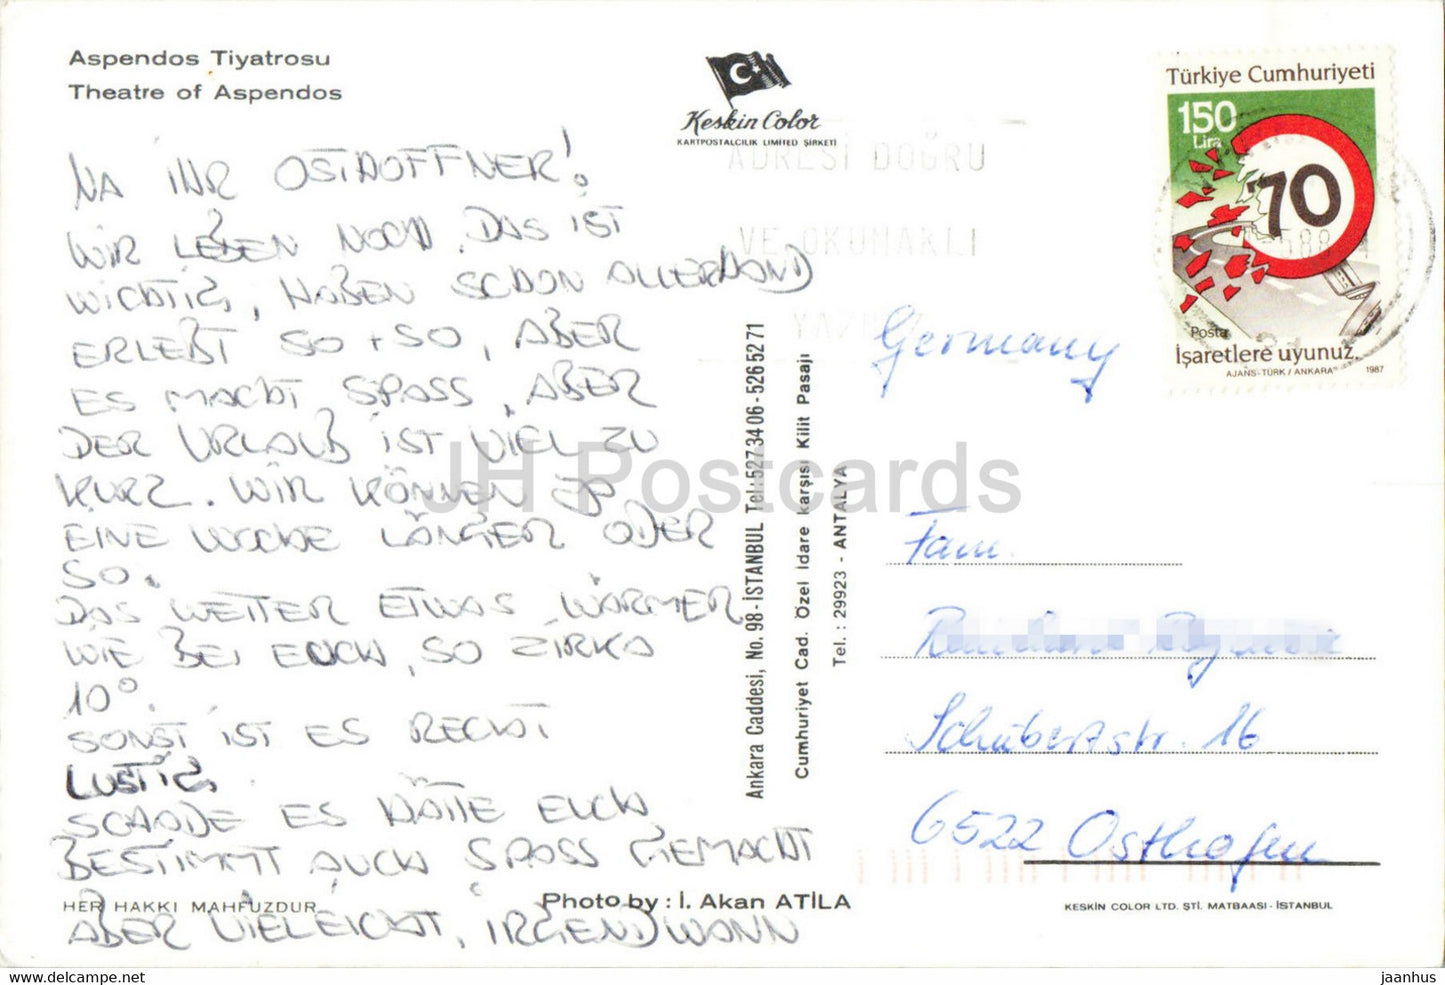 Aspendos Tiyatrosu
Theatre of Aspendos
Keskin Color
KARTPOSTALCILIK LIMITED ŞİRKETİ
NA IHR OSTHOFFNER!
WIR LEBEN NOCH, DAS IST
WICHTIG, HABEN SCHON ALLERHAND
ERLEBT SO + SO, ABER
ES MACHT SPASS, ABER
DER URLAUB IST VIEL ZU
KURZ. WIR KÖNNEN JA
EINE WOCHE LÄNGER ODER
SO.
DAS WETTER ETWAS WÄRMER
WIE BEI EUCH, SO ZIRKA
10°.
SONST IST ES RECHT
LUSTIG,
SCHADE ES HÄTTE EUCH
BESTIMMT AUCH SPASS GEMACHT
ABER VIELEICHT, IRGENDWANN
HER HAKKI MAHFUZDUR
Photo by : İ. Akan ATİLA
Ankara Caddesi, No. 98 - İSTANBUL Tel.: 527 34 06 - 526 52 71
Cumhuriyet Cad. Özel İdare karşısı Kilit Pasajı
Tel. : 29923 - ANTALYA
ADRESİ DOĞRU
VE OKUNAKLI
Türkiye Cumhuriyeti
150
Lira
70
Posta
İşaretlere uyunuz.
AJANS-TÜRK / ANKARA 1987
Germany
Fam.
Schubertstr. 16
6522 Osthofen
KESKİN COLOR LTD. ŞTİ. MATBAASI - İSTANBUL
JH Postcards
delcampe.net
jaanhus